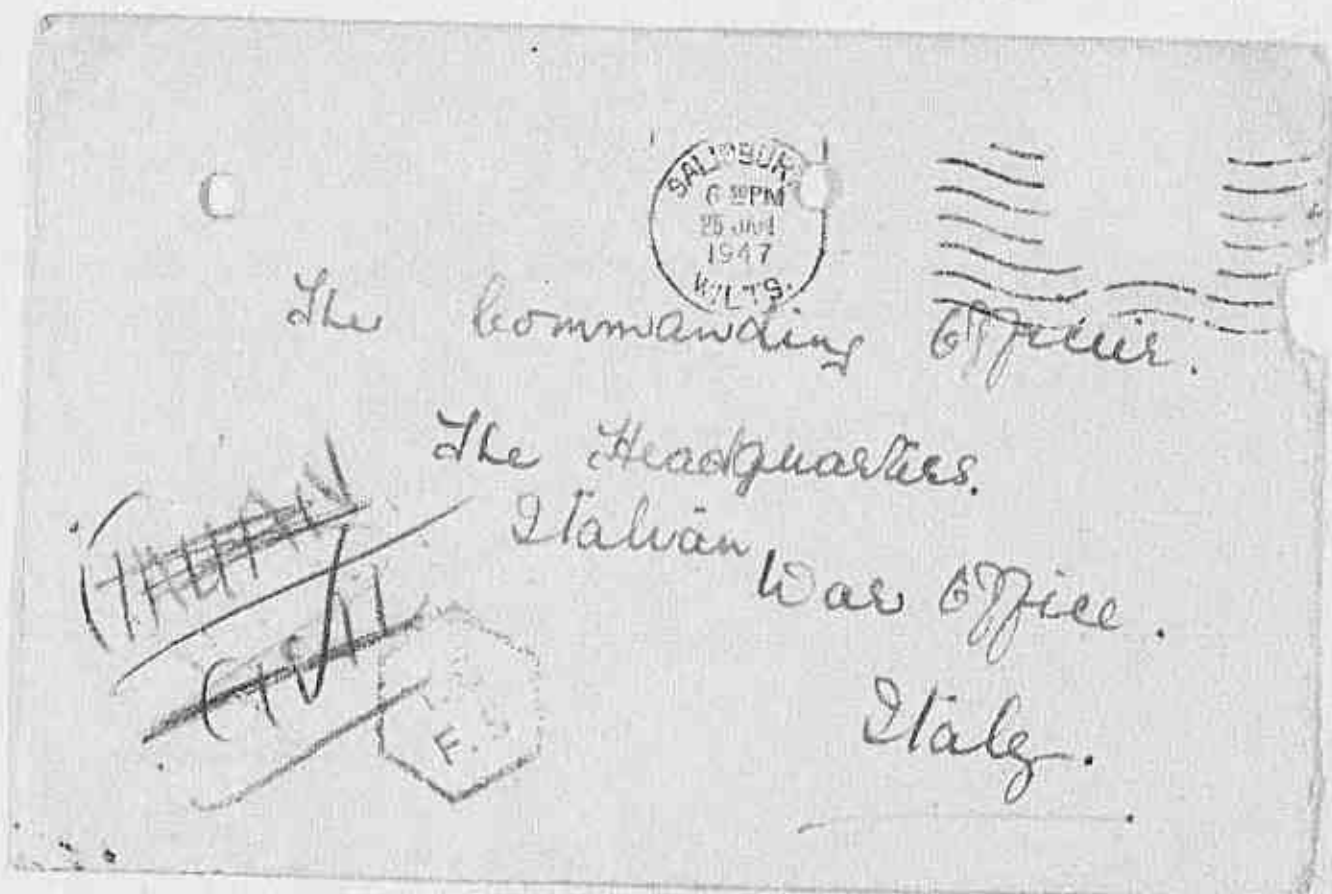 SALISBURY
6 30 PM
25 JAN
1947
WILTS.
The Commanding Officer.
The Headquarters.
Italian
War Office.
Italy.
ITALIAN
CIVIL
F.